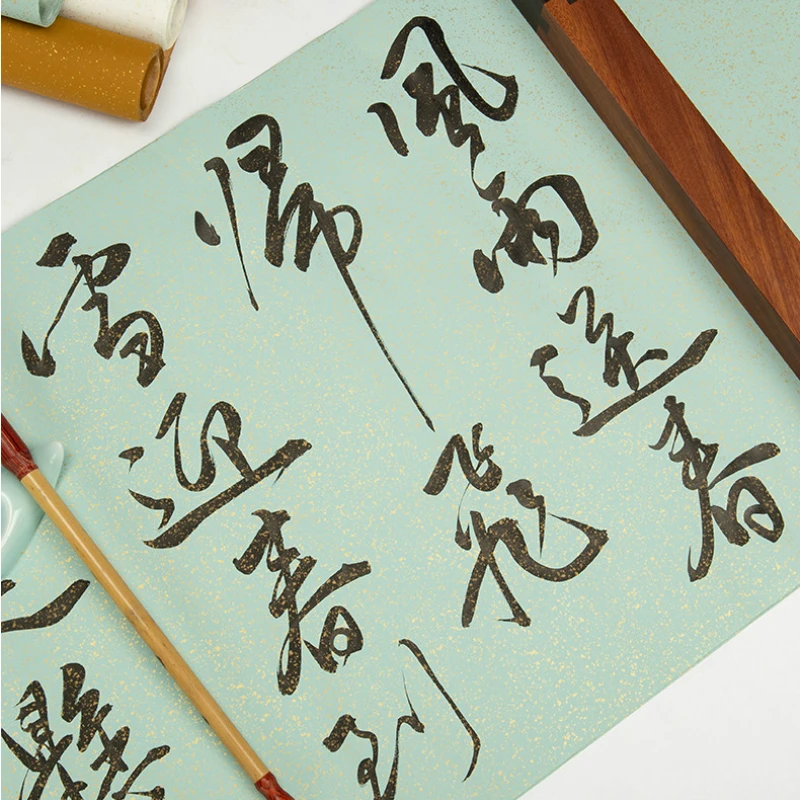 風雨送春
歸飛
雪迎春到